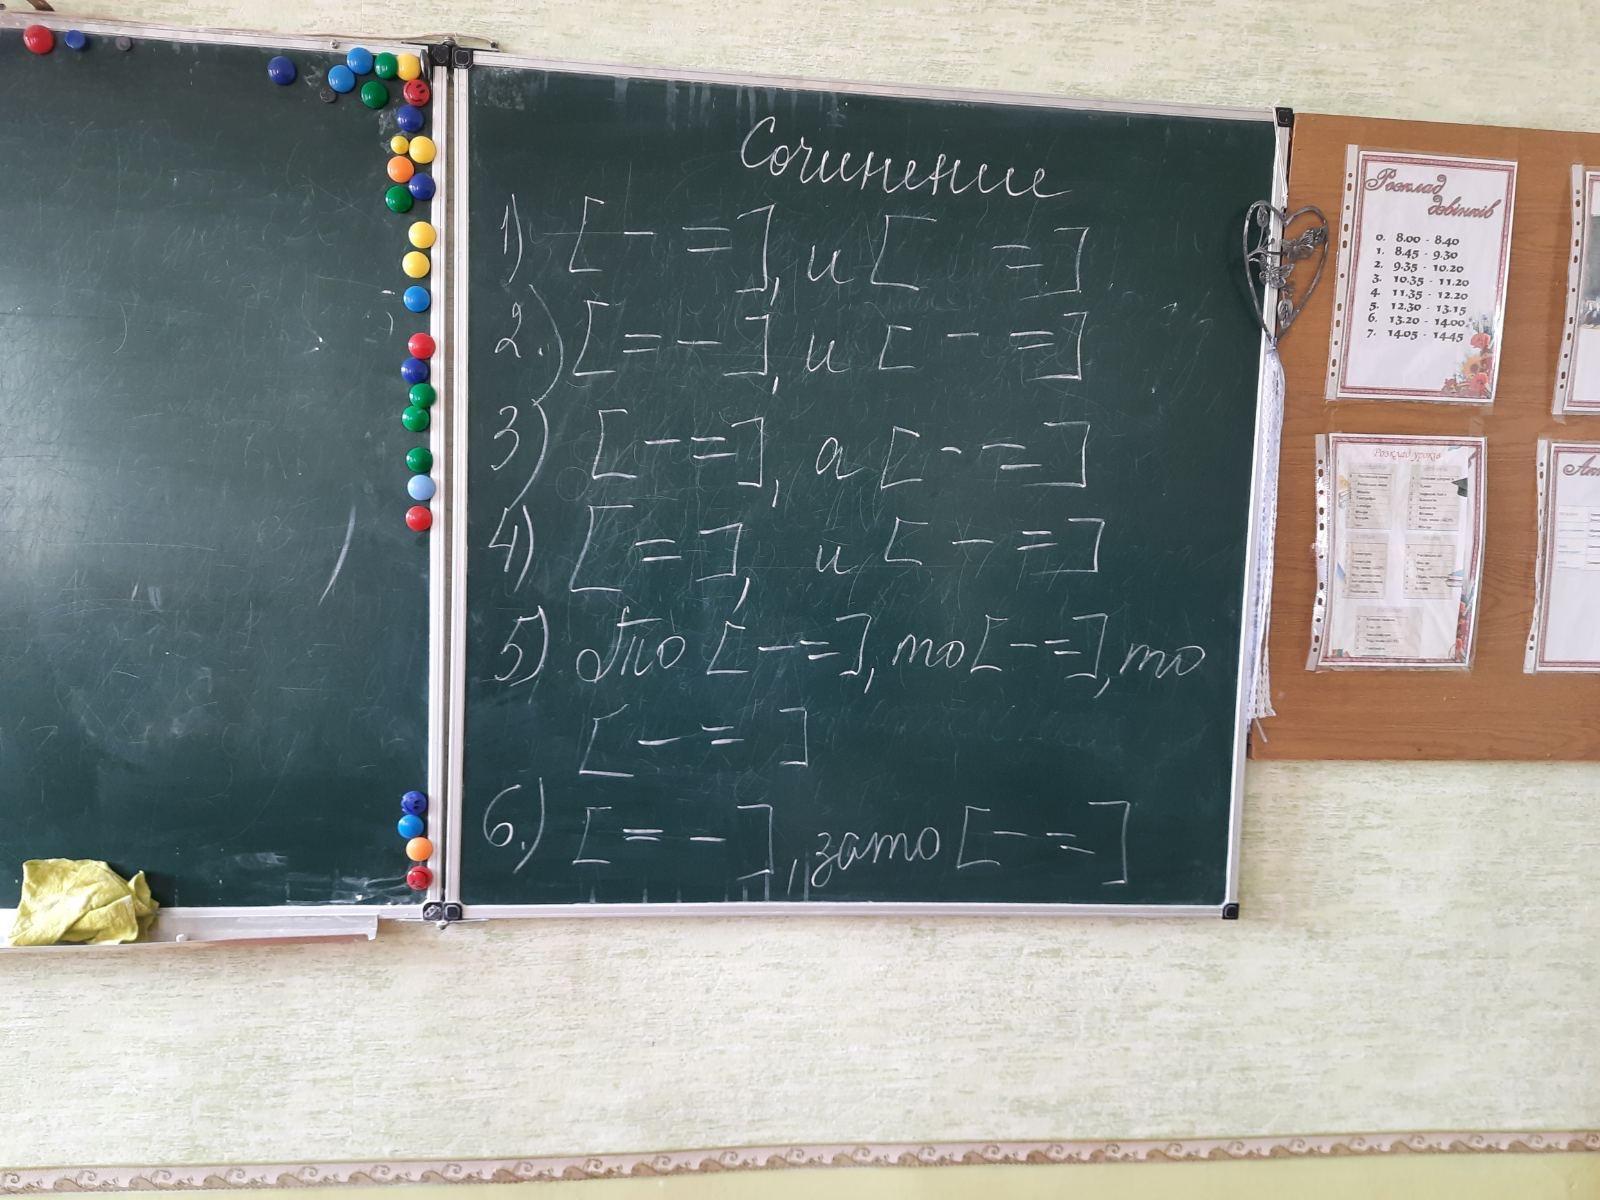 Сочинение
1) [ — = ], и [ = ]
2.) [ = — ], и [ — = ]
3) [ — = ], а [ — = ]
4) [ = ], и [ — = ]
5) То [ — = ], то [ — = ], то
[ — = ]
6.) [ = — ], зато [ — = ]
Розклад
дзвінків
0. 8.00 - 8.40
1. 8.45 - 9.30
2. 9.35 - 10.20
3. 10.35 - 11.20
4. 11.35 - 12.20
5. 12.30 - 13.15
6. 13.20 - 14.00
7. 14.05 - 14.45
Розклад уроків